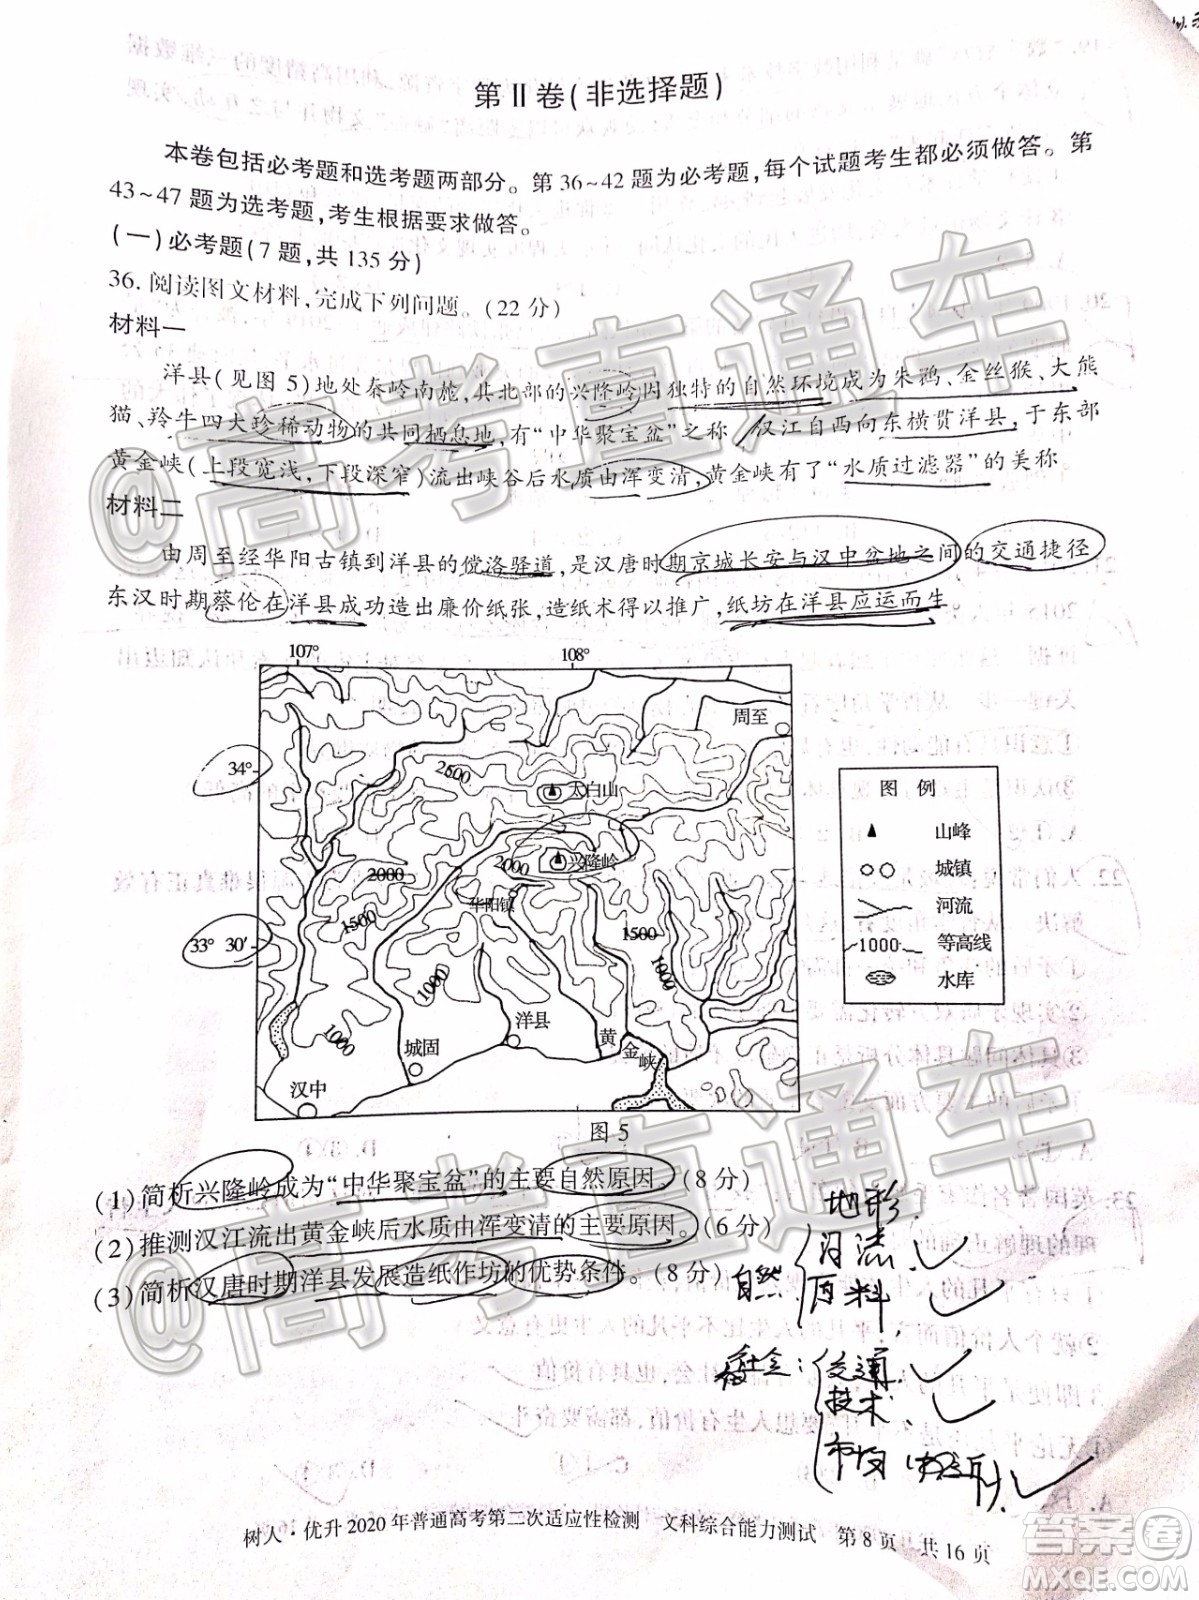 第Ⅱ卷(非选择题)
本卷包括必考题和选考题两部分。第36~42题为必考题,每个试题考生都必须做答。第
43~47题为选考题,考生根据要求做答。
(一)必考题(7题,共135分)
36.阅读图文材料,完成下列问题。(22分)
材料一
洋县(见图5)地处秦岭南麓,其北部的兴隆岭因独特的自然环境成为朱鹮、金丝猴、大熊
猫、羚牛四大珍稀动物的共同栖息地,有“中华聚宝盆”之称,汉江自西向东横贯洋县,于东部
黄金峡(上段宽浅,下段深窄)流出峡谷后水质由浑变清,黄金峡有了“水质过滤器”的美称
材料二
由周至经华阳古镇到洋县的傥洛驿道,是汉唐时期京城长安与汉中盆地之间的交通捷径
东汉时期蔡伦在洋县成功造出廉价纸张,造纸术得以推广,纸坊在洋县应运而生
107°
108°
周至
34°
2500
太白山
兴隆岭
2000
2000
华阳镇
1500
33° 30′
1500
1000
1000
1000
洋县
城固
黄
金
峡
汉中
图例
山峰
城镇
河流
1000
等高线
水库
图5
(1)简析兴隆岭成为“中华聚宝盆”的主要自然原因。(8分)
(2)推测汉江流出黄金峡后水质由浑变清的主要原因。(6分)
(3)简析汉唐时期洋县发展造纸作坊的优势条件。(8分)
地形
河流
自然
原料
社会:
交通
技术
市场
树人·优升2020年普通高考第二次适应性检测 文科综合能力测试 第8页 共16页
@高考直通车
@高考直通车
答案圈
MXQE.COM